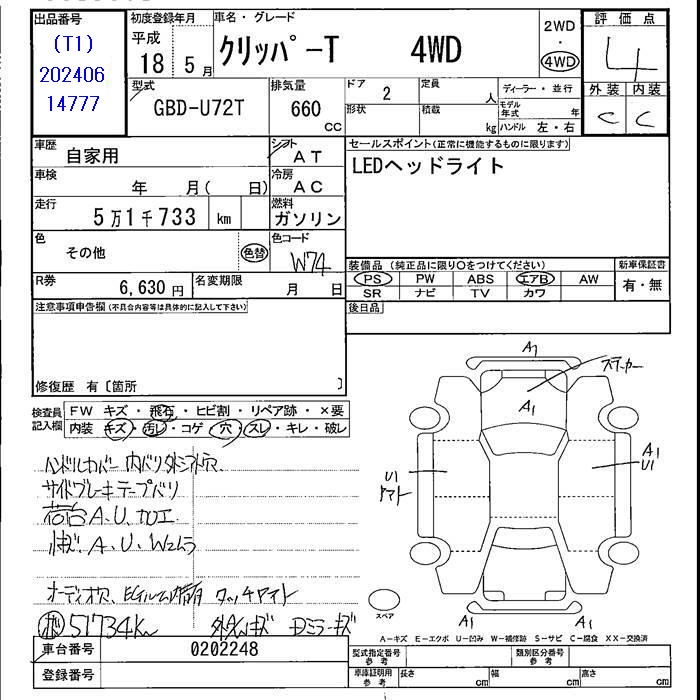 出品番号
(T1)
202406
14777
初度登録年月
平成
18 5月
車名・グレード
クリッパーT 4WD
2WD
4WD
評価点
4
外装 内装
C C
型式
GBD-U72T
排気量
660
CC
ドア 2
形状
定員 人
積載 kg
ディーラー・並行
モデル年式 年
ハンドル 左・右
車歴
自家用
シフト
AT
車検
年 月( 日)
冷房
AC
走行
5万1千733 km
燃料
ガソリン
色
その他
色替
色コード
W74
R券
6,630円
名変期限
月 日
セールスポイント(正常に機能するものに限ります)
LEDヘッドライト
装備品 (純正品に限り○をつけてください)
PS PW ABS エアB AW
SR ナビ TV カワ
新車保証書
有・無
後日品
注意事項申告欄(不具合内容等は具体的に記入して下さい)
修復歴 有〔箇所 〕
検査員記入欄
FW キズ・飛石・ヒビ割・リペア跡・×要
内装 キズ・汚レ・コゲ・穴・スレ・キレ・破レ
ハンドルカバー
サイドブレーキテープバリ
荷台A.U.加工
A.U.W2ムラ
オーディオ穴、EGルーム タッチアト
51734Km
Dミラーキズ
A1
ステッカー
A1
A1
U1
U1
A1
A1
スペア
A-キズ E-エクボ U-凹み W-補修跡 S-サビ C-腐食 XX-交換済
車台番号
0202248
登録番号
型式指定番号
参考
類別区分番号
参考
車庫証明用
参考
長さ cm
幅 cm
高さ cm